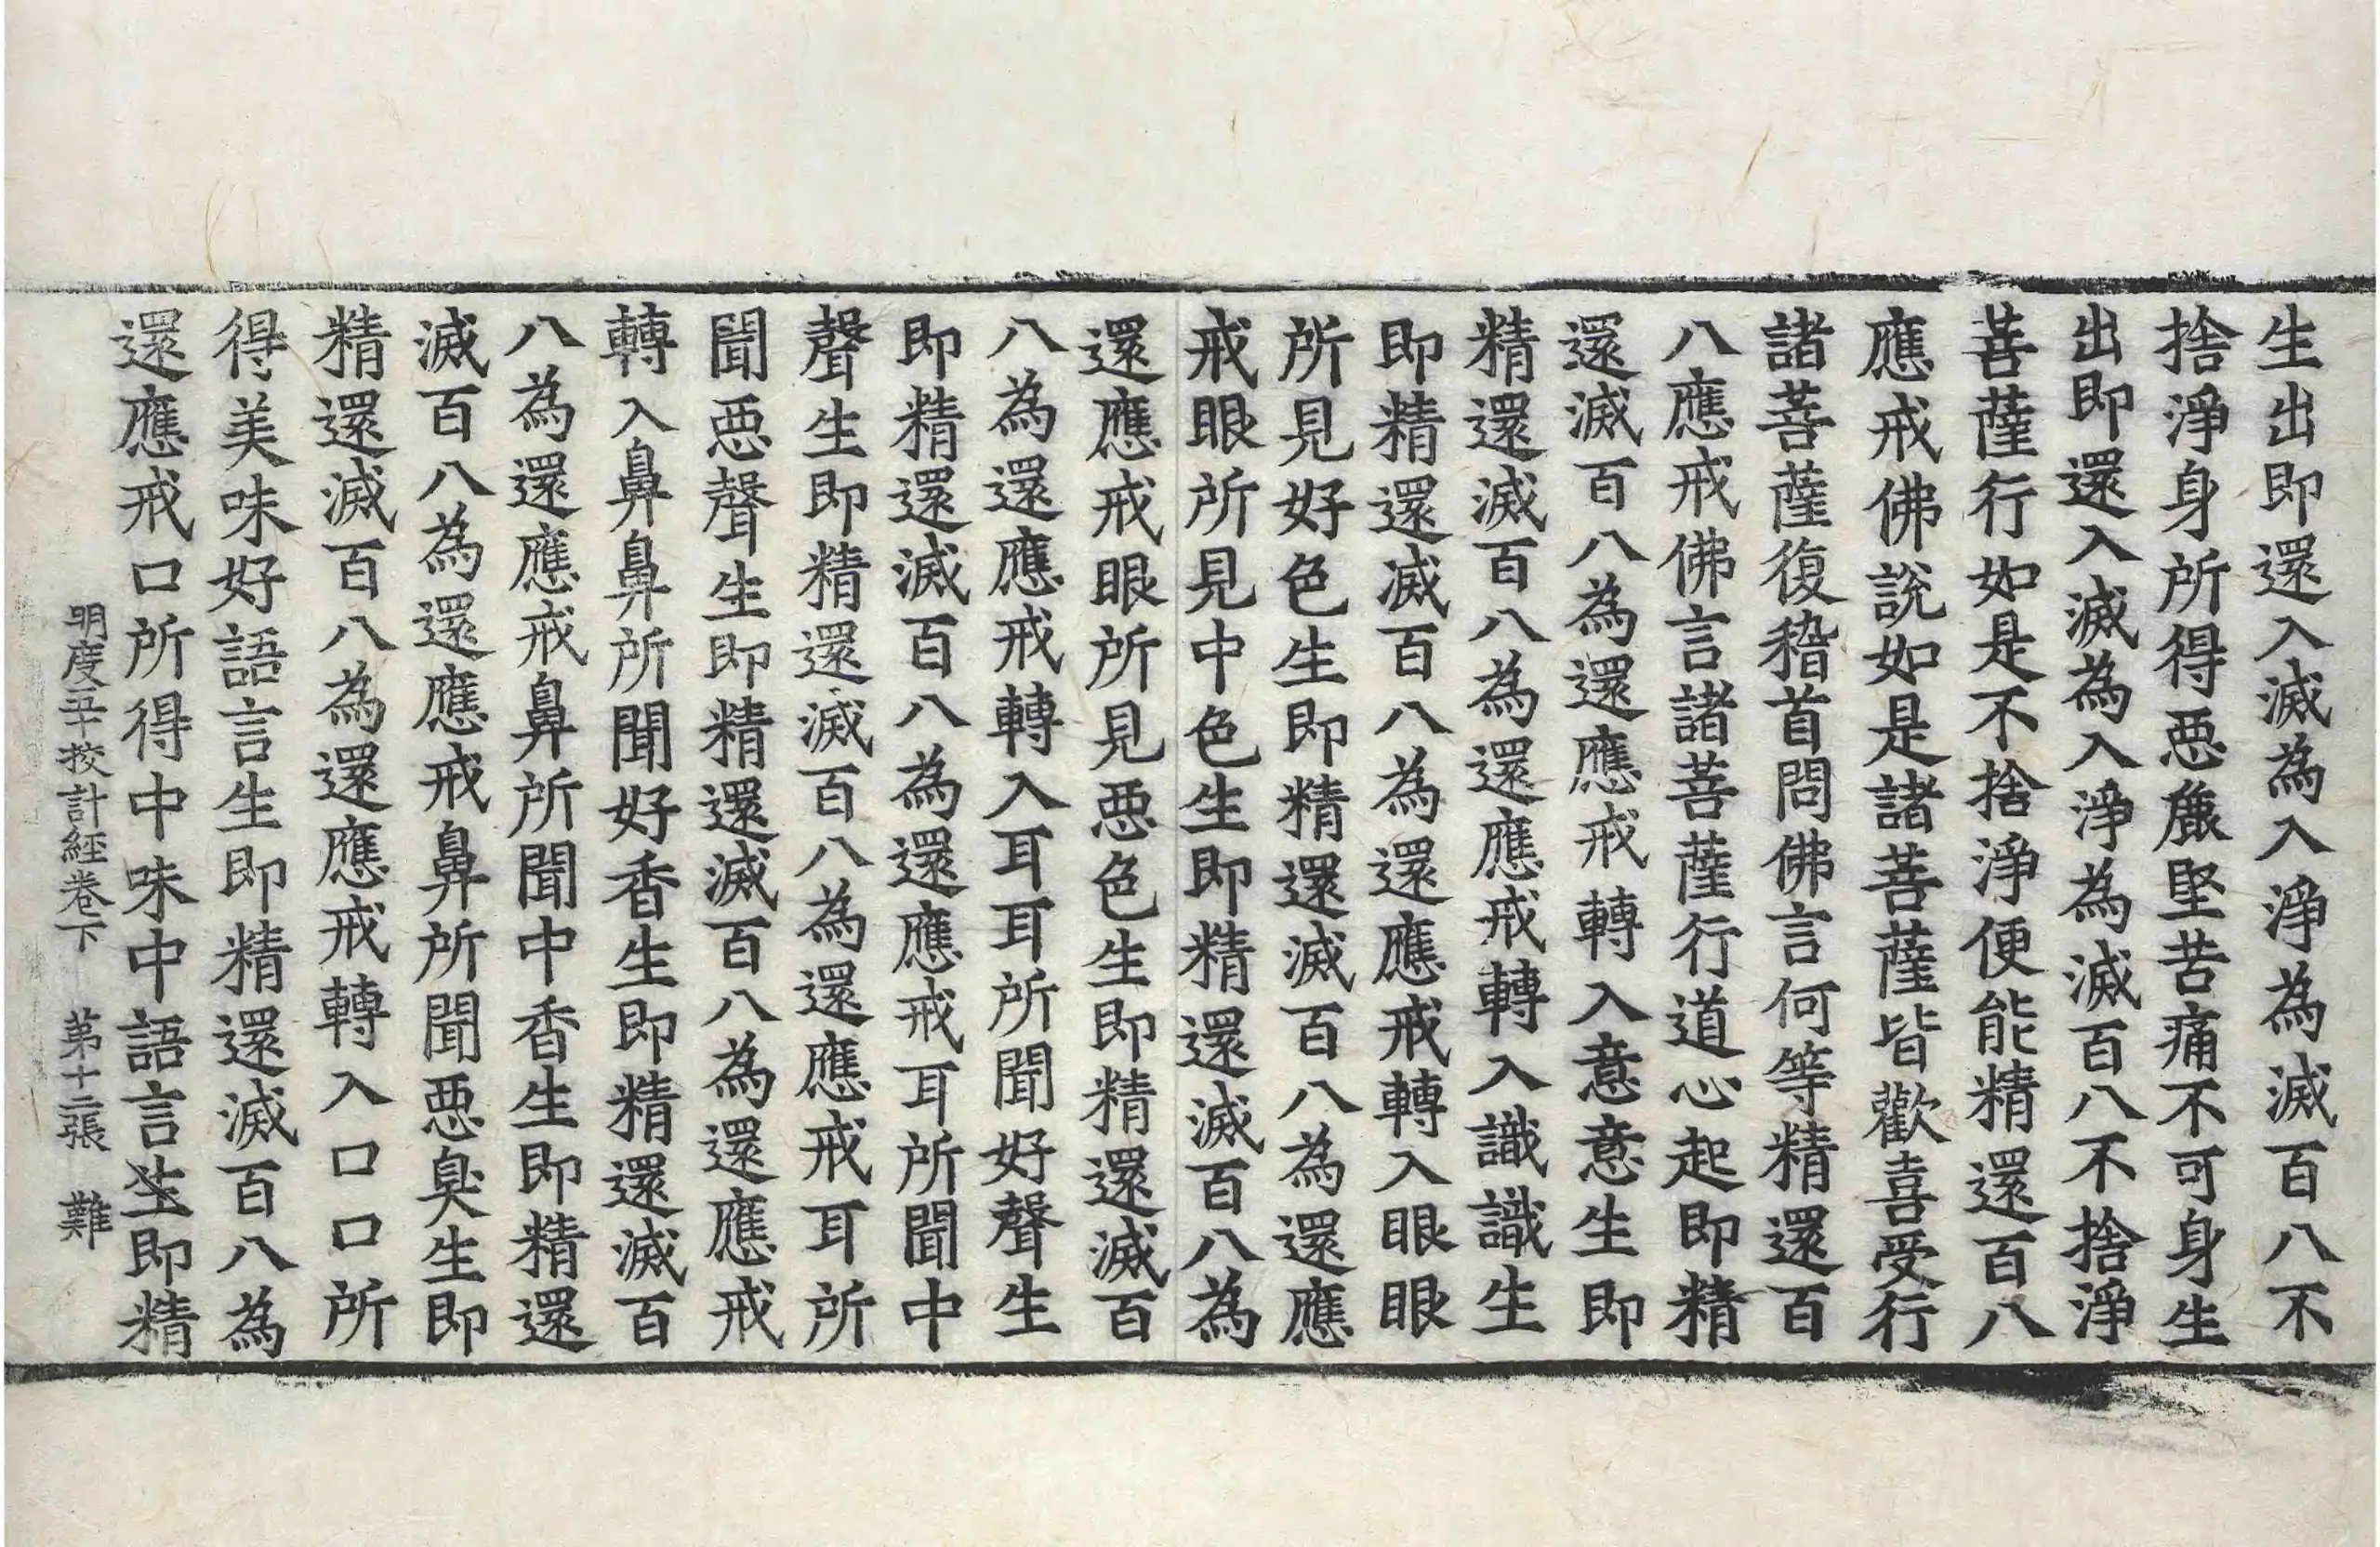 生出即還入滅為入淨為滅百八不
捨淨身所得惡麁堅苦痛不可身生
出即還入滅為入淨為滅百八不捨淨
菩薩行如是不捨淨便能精還百八
應戒佛說如是諸菩薩皆歡喜受行
諸菩薩復稽首問佛言何等精還百
八應戒佛言諸菩薩行道心起即精
還滅百八為還應戒轉入意意生即
精還滅百八為還應戒轉入識識生
即精還滅百八為還應戒轉入眼眼
所見好色生即精還滅百八為還應
戒眼所見中色生即精還滅百八為
還應戒眼所見惡色生即精還滅百
八為還應戒轉入耳耳所聞好聲生
即精還滅百八為還應戒耳所聞中
聲生即精還滅百八為還應戒耳所
聞惡聲生即精還滅百八為還應戒
轉入鼻鼻所聞好香生即精還滅百
八為還應戒鼻所聞中香生即精還
滅百八為還應戒鼻所聞惡臭生即
精還滅百八為還應戒轉入口口所
得美味好語言生即精還滅百八為
還應戒口所得中味中語言生即精
明度五十挍計經卷下 第十二張 難